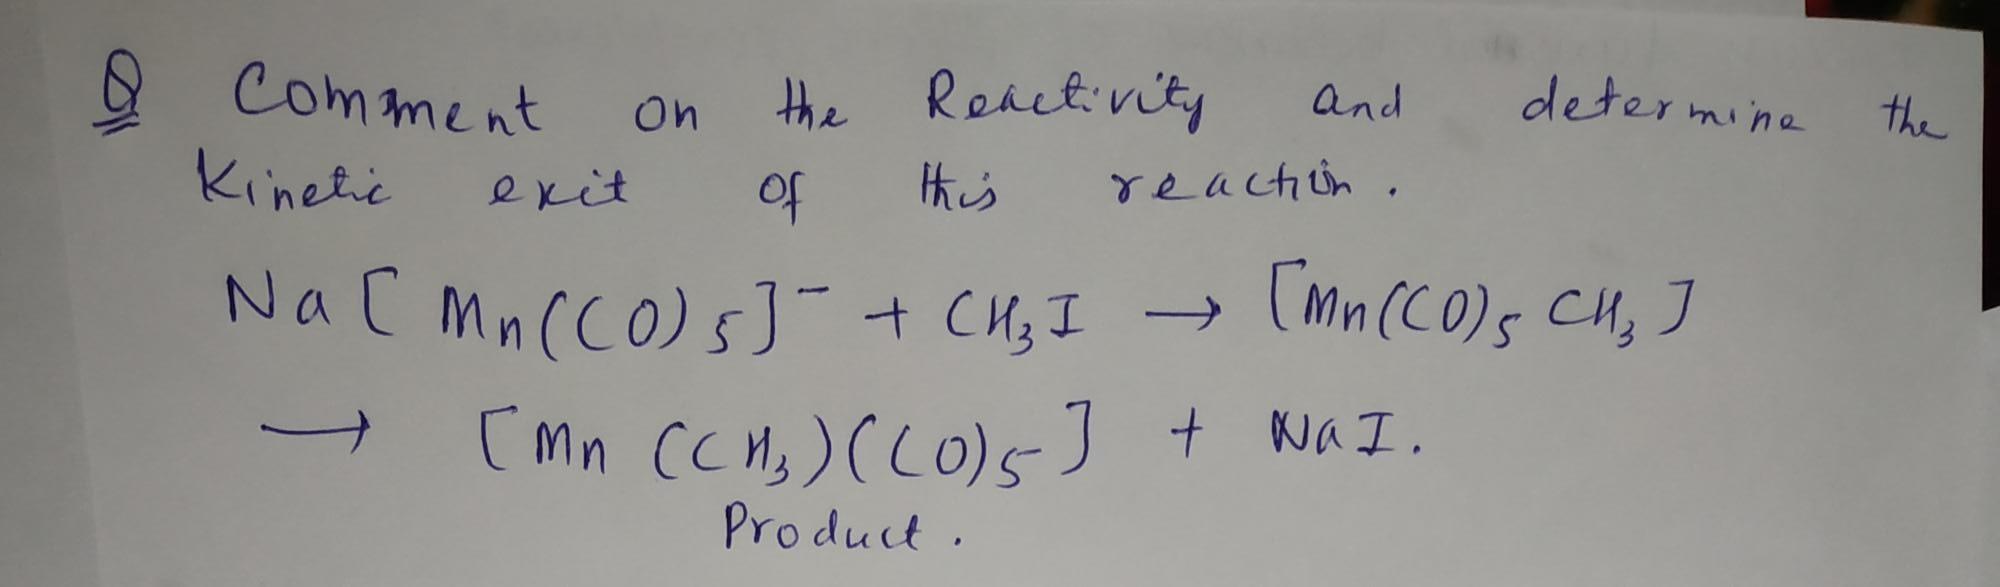 Q Comment on the Reactivity and determine the
Kinetic exit of this reaction.
Na[Mn(CO)5]⁻ + CH3I → [Mn(CO)5 CH3]
→ [Mn (CH3)(CO)5] + NaI.
Product.